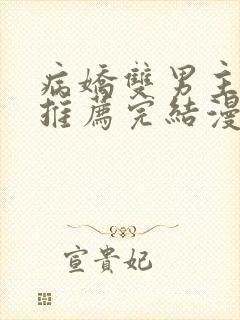 病嬌雙男主
推薦完結漫
宣貴妃